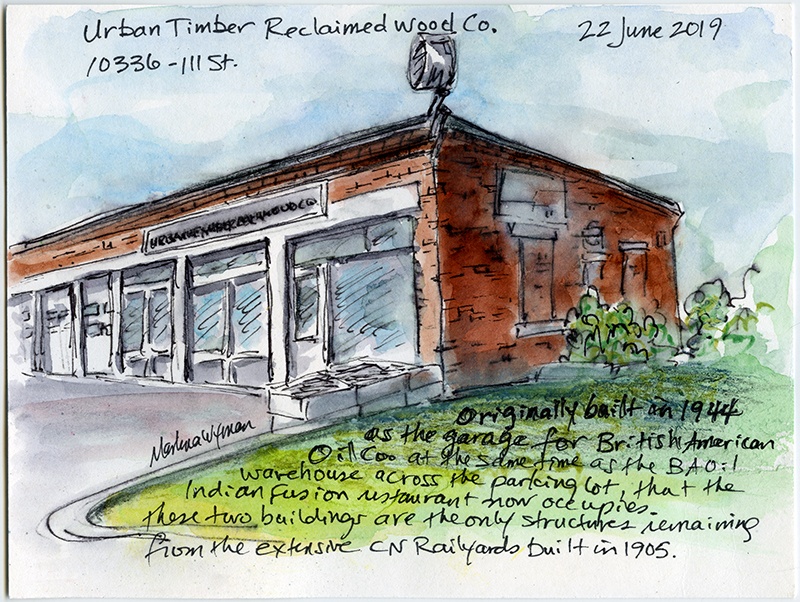 Urban Timber Reclaimed Wood Co.
22 June 2019
10336 - 111 St.
Marlena Wyman
Originally built in 1944
as the garage for British American
Oil Co. at the same time as the BA Oil
warehouse across the parking lot, that the
Indian Fusion restaurant now occupies.
these two buildings are the only structures remaining
from the extensive CN Railyards built in 1905.